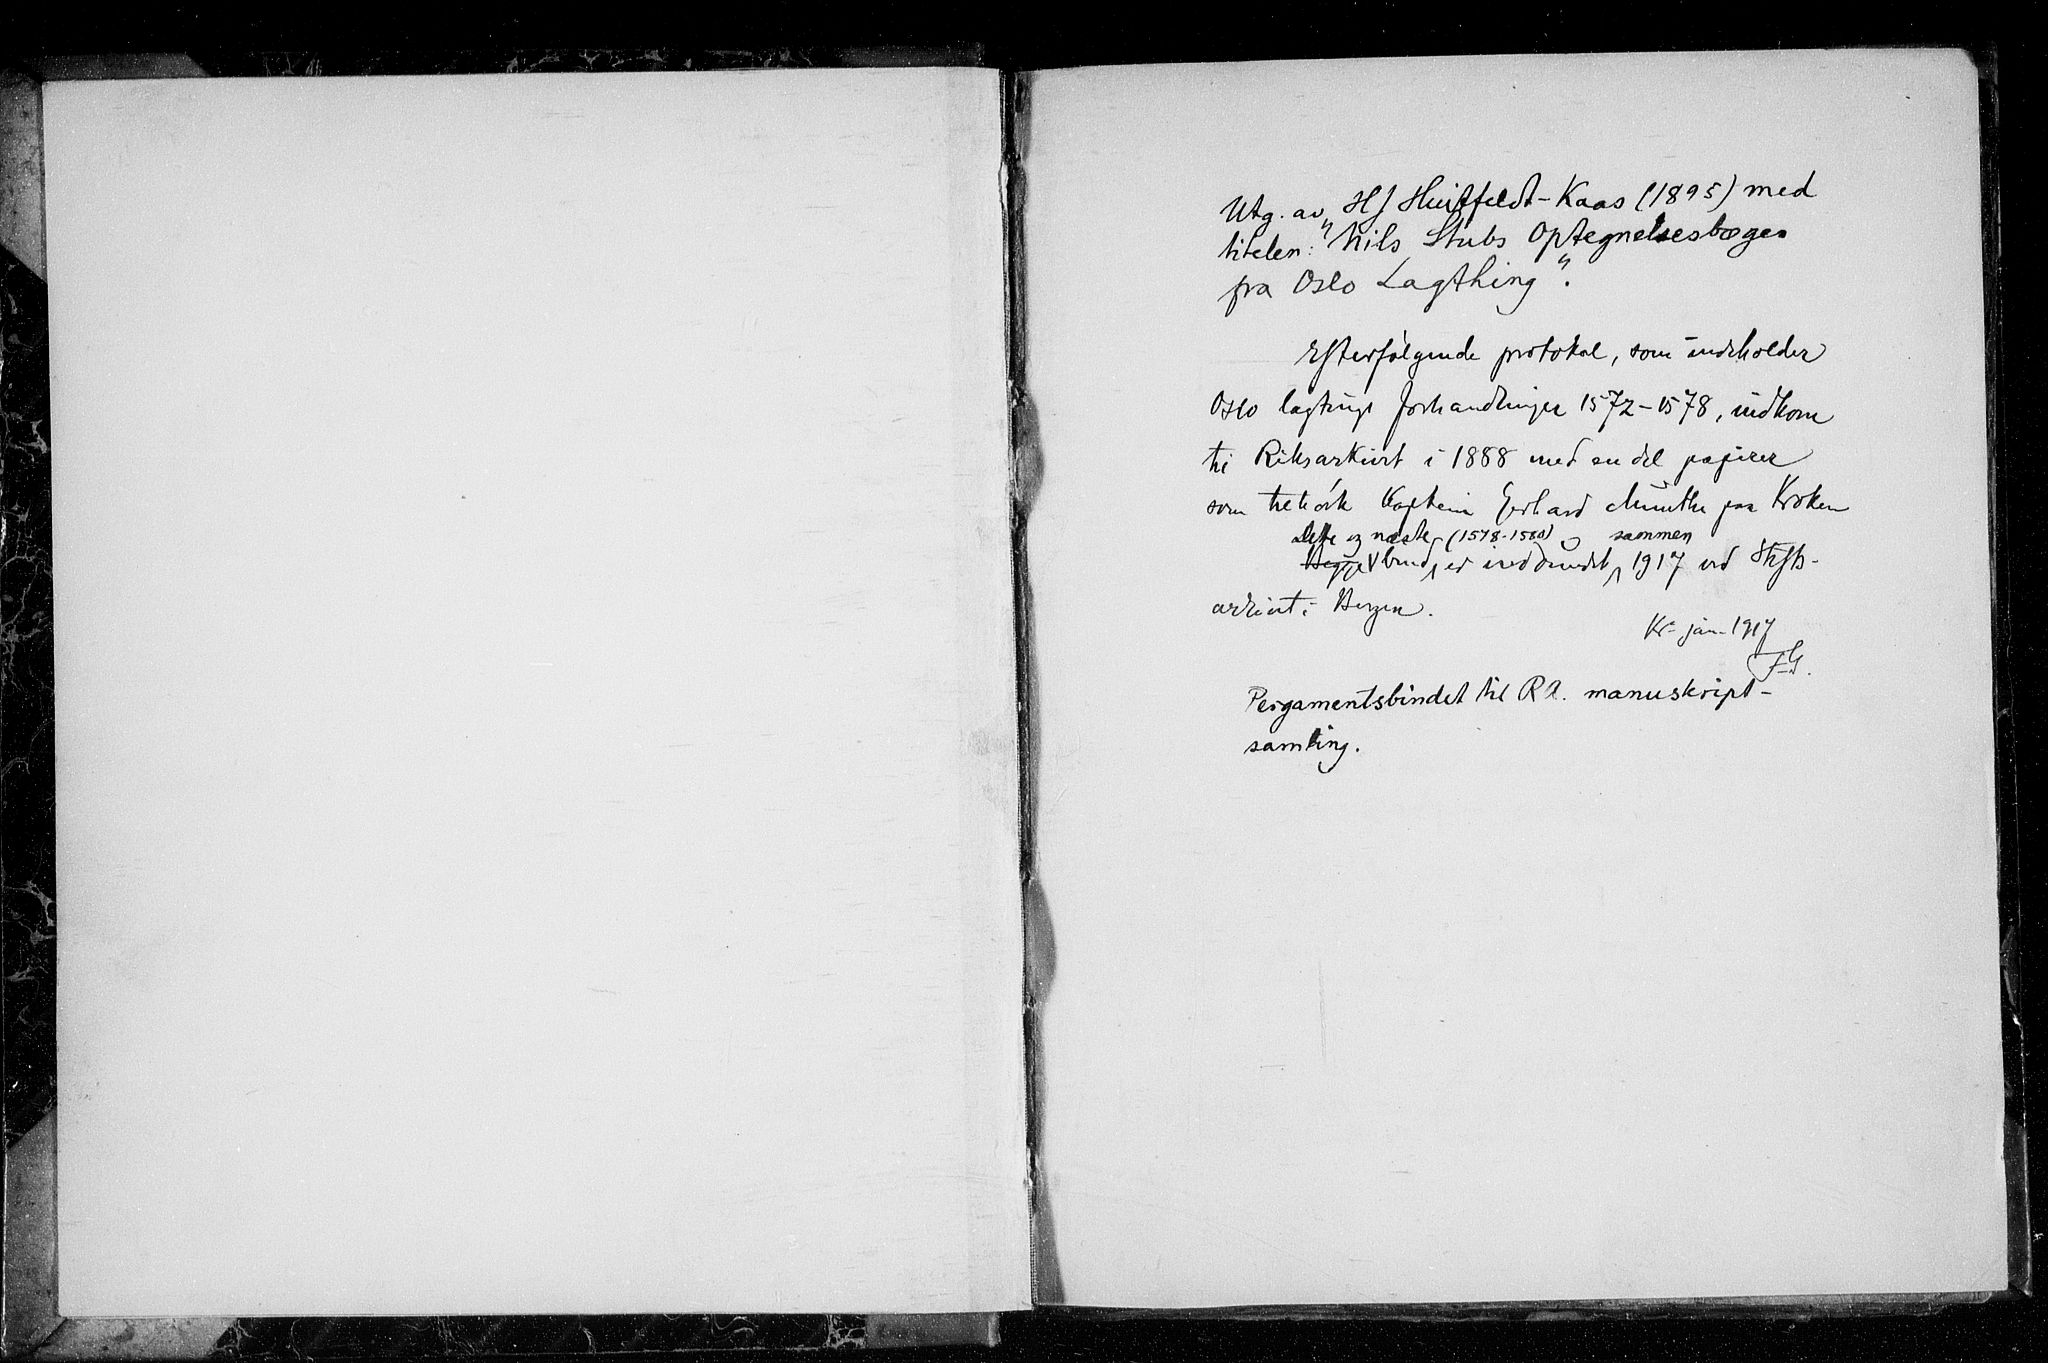 Utg. av HJ Huitfeldt-Kaas (1895) med
titelen: "Nils Stubs Optegnelsesbøger
fra Oslo Lagthing".
Efterfølgende protokol, som indeholder
Oslo lagtings forhandlinger 1572-1578, indkom
til Riksarkivet i 1888 med en del papirer
som tilhørte Kaptein Gerhard Munthe paa Kroken
Dette og næste (1578-1580) sammen
Begge bind er indbundet 1917 ved Stifts-
arkivet i Bergen.
Kr. jan. 1917
FG.
Pergamentsbindet til RA. manuskript-
samling.